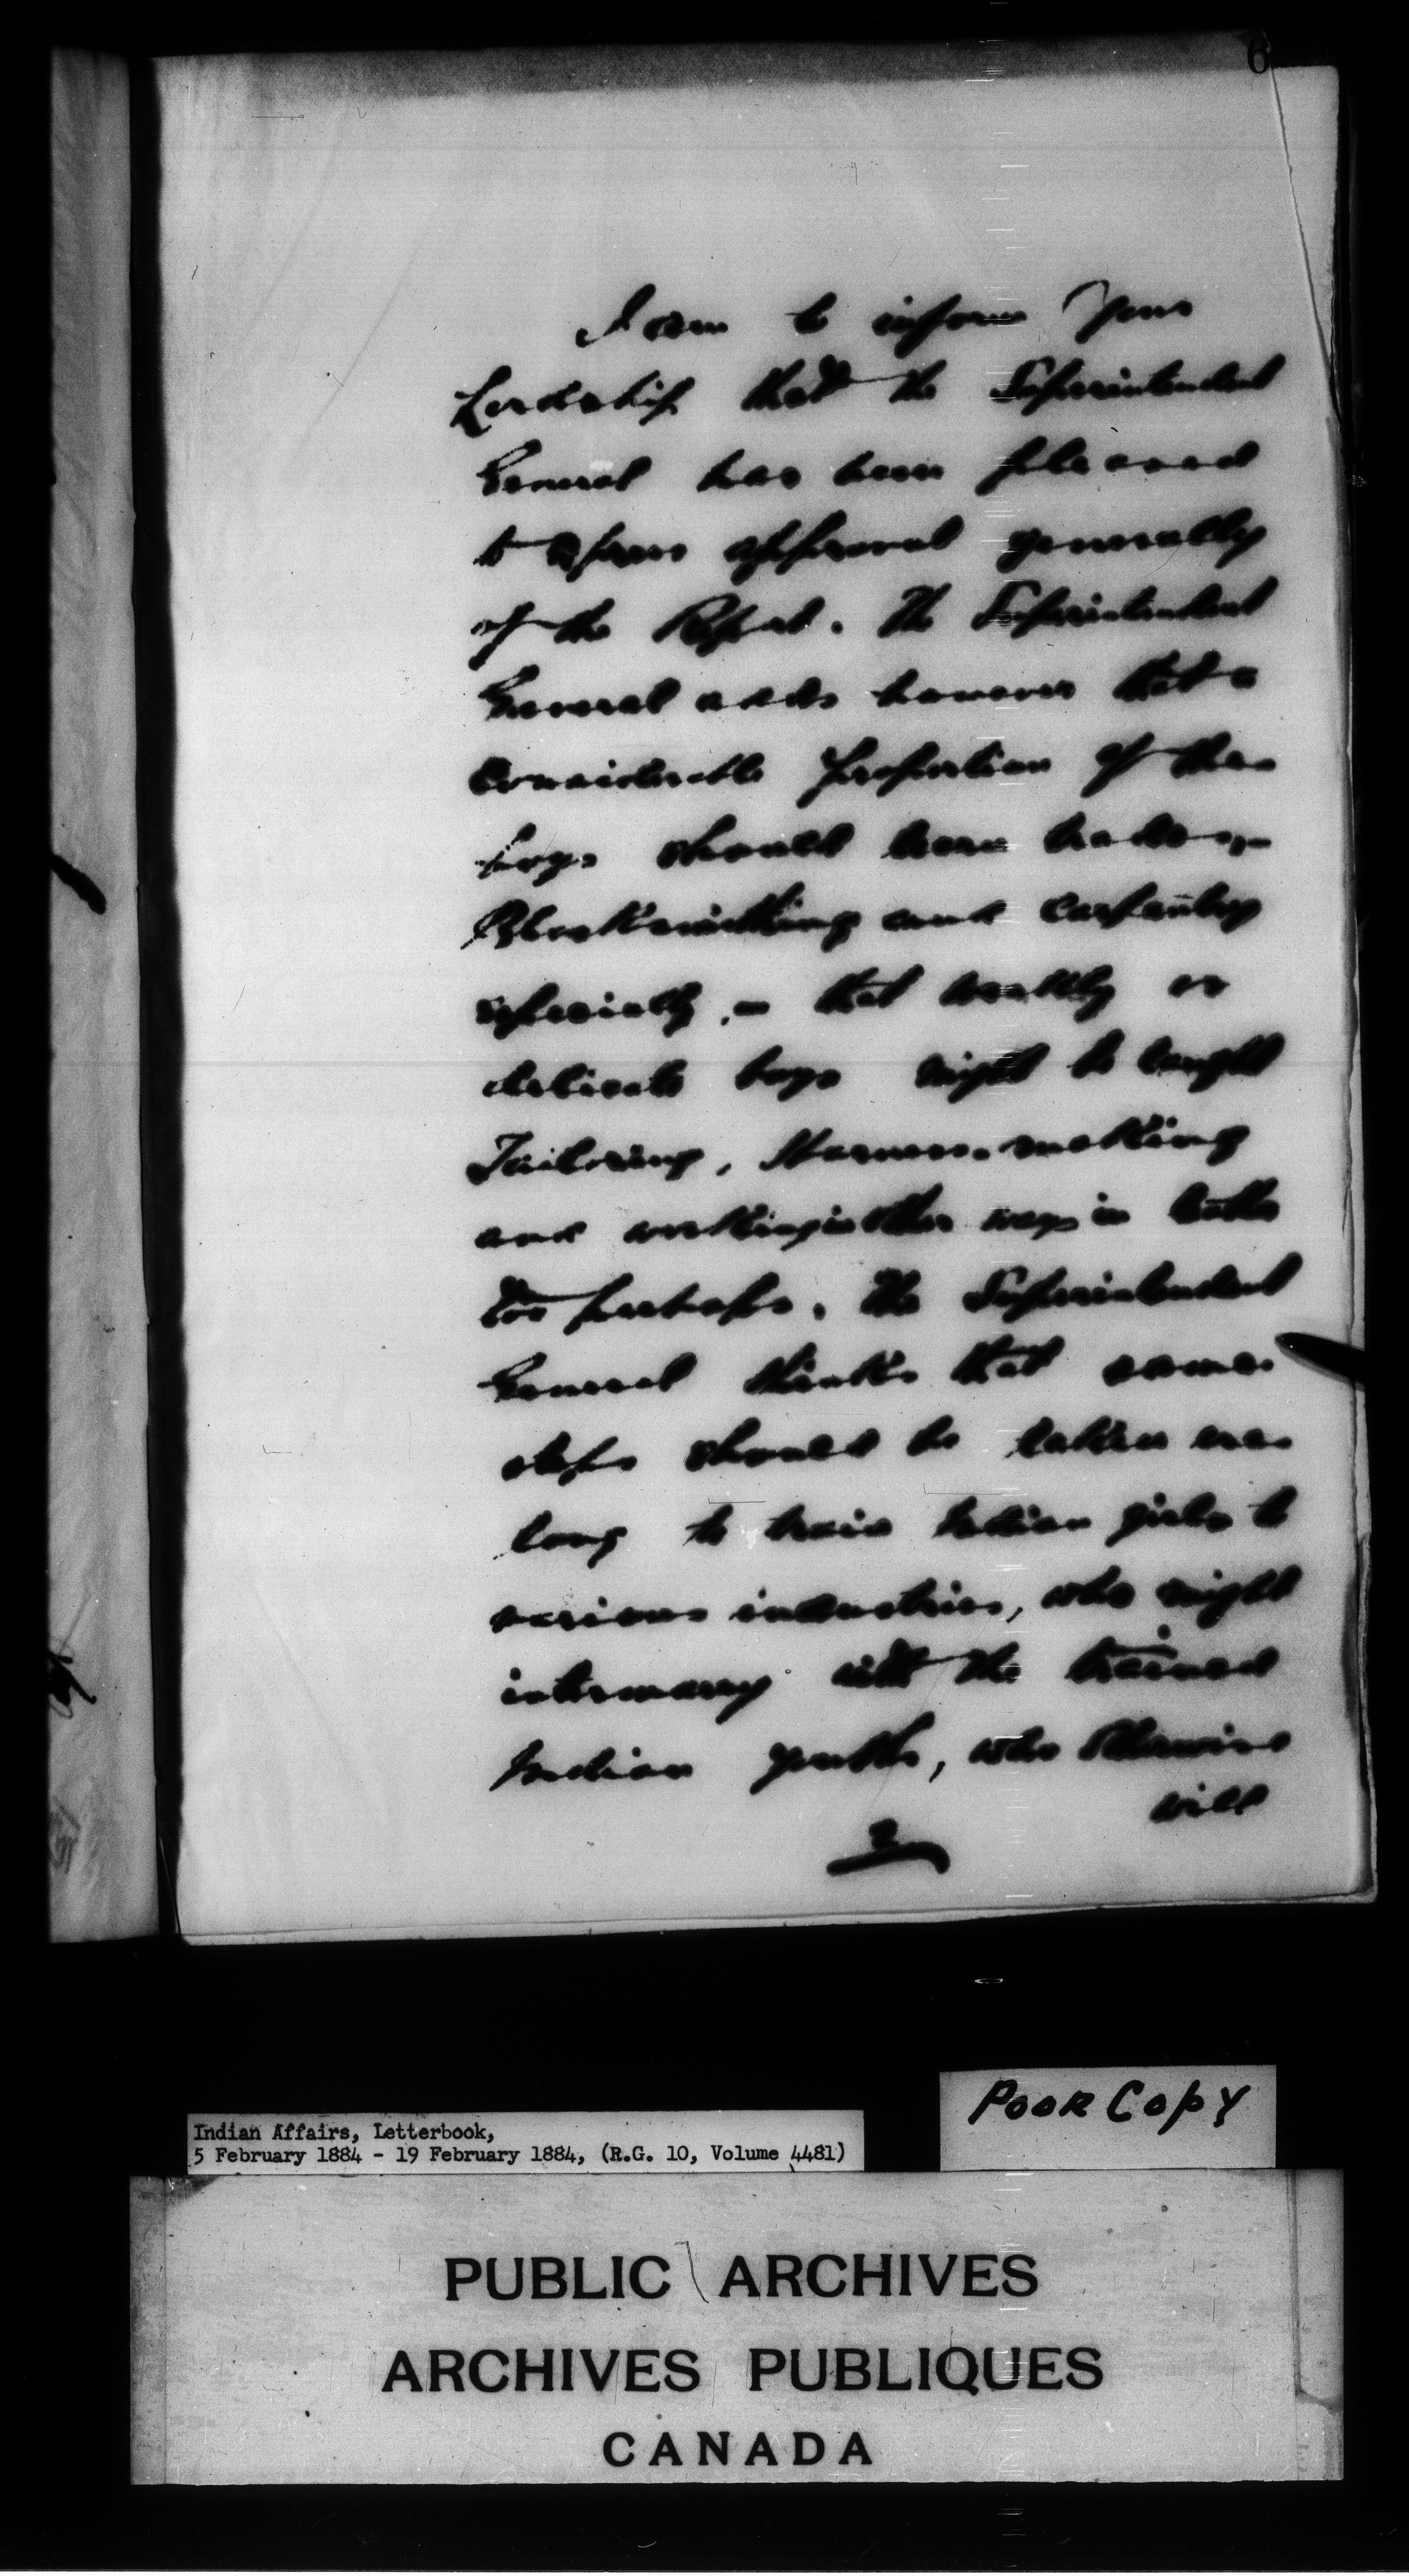 6
I am to inform Your
Lordship that the Superintendent
General has been pleased
to express approval generally
of the Report. The Superintendent
General adds however that a
considerable proportion of the
boys should learn trades,—
Blacksmithing and Carpentry
especially,— that weakly or
delicate boys might be taught
Tailoring, Harness-making
and working in other ways in leather
too perhaps. The Superintendent
General thinks that some
steps should be taken ere
long to train Indian girls to
various industries, who might
intermarry with the trained
Indian youths, who otherwise
will
Poor Copy
Indian Affairs, Letterbook,
5 February 1884 - 19 February 1884, (R.G. 10, Volume 4481)
PUBLIC ARCHIVES
ARCHIVES PUBLIQUES
CANADA